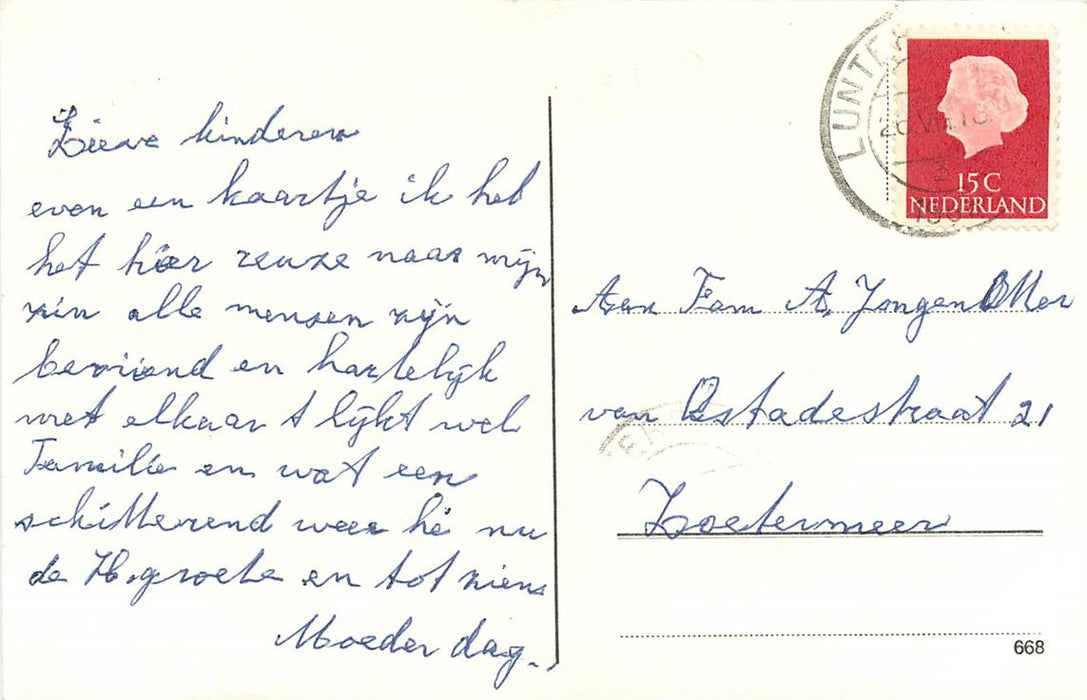 Lieve kinderen
even een kaartje ik heb
het hier reuze naar mijn
zin alle mensen zijn
bevriend en hartelijk
met elkaar t lijkt wel
Familie en wat een
schitterend weer hé nu
de H.groete en tot ziens
Moeder dag.
LUNTE
15 C
NEDERLAND
Aan Fam A, Jongen
van Ostadestraat 21
Zoetermeer
668